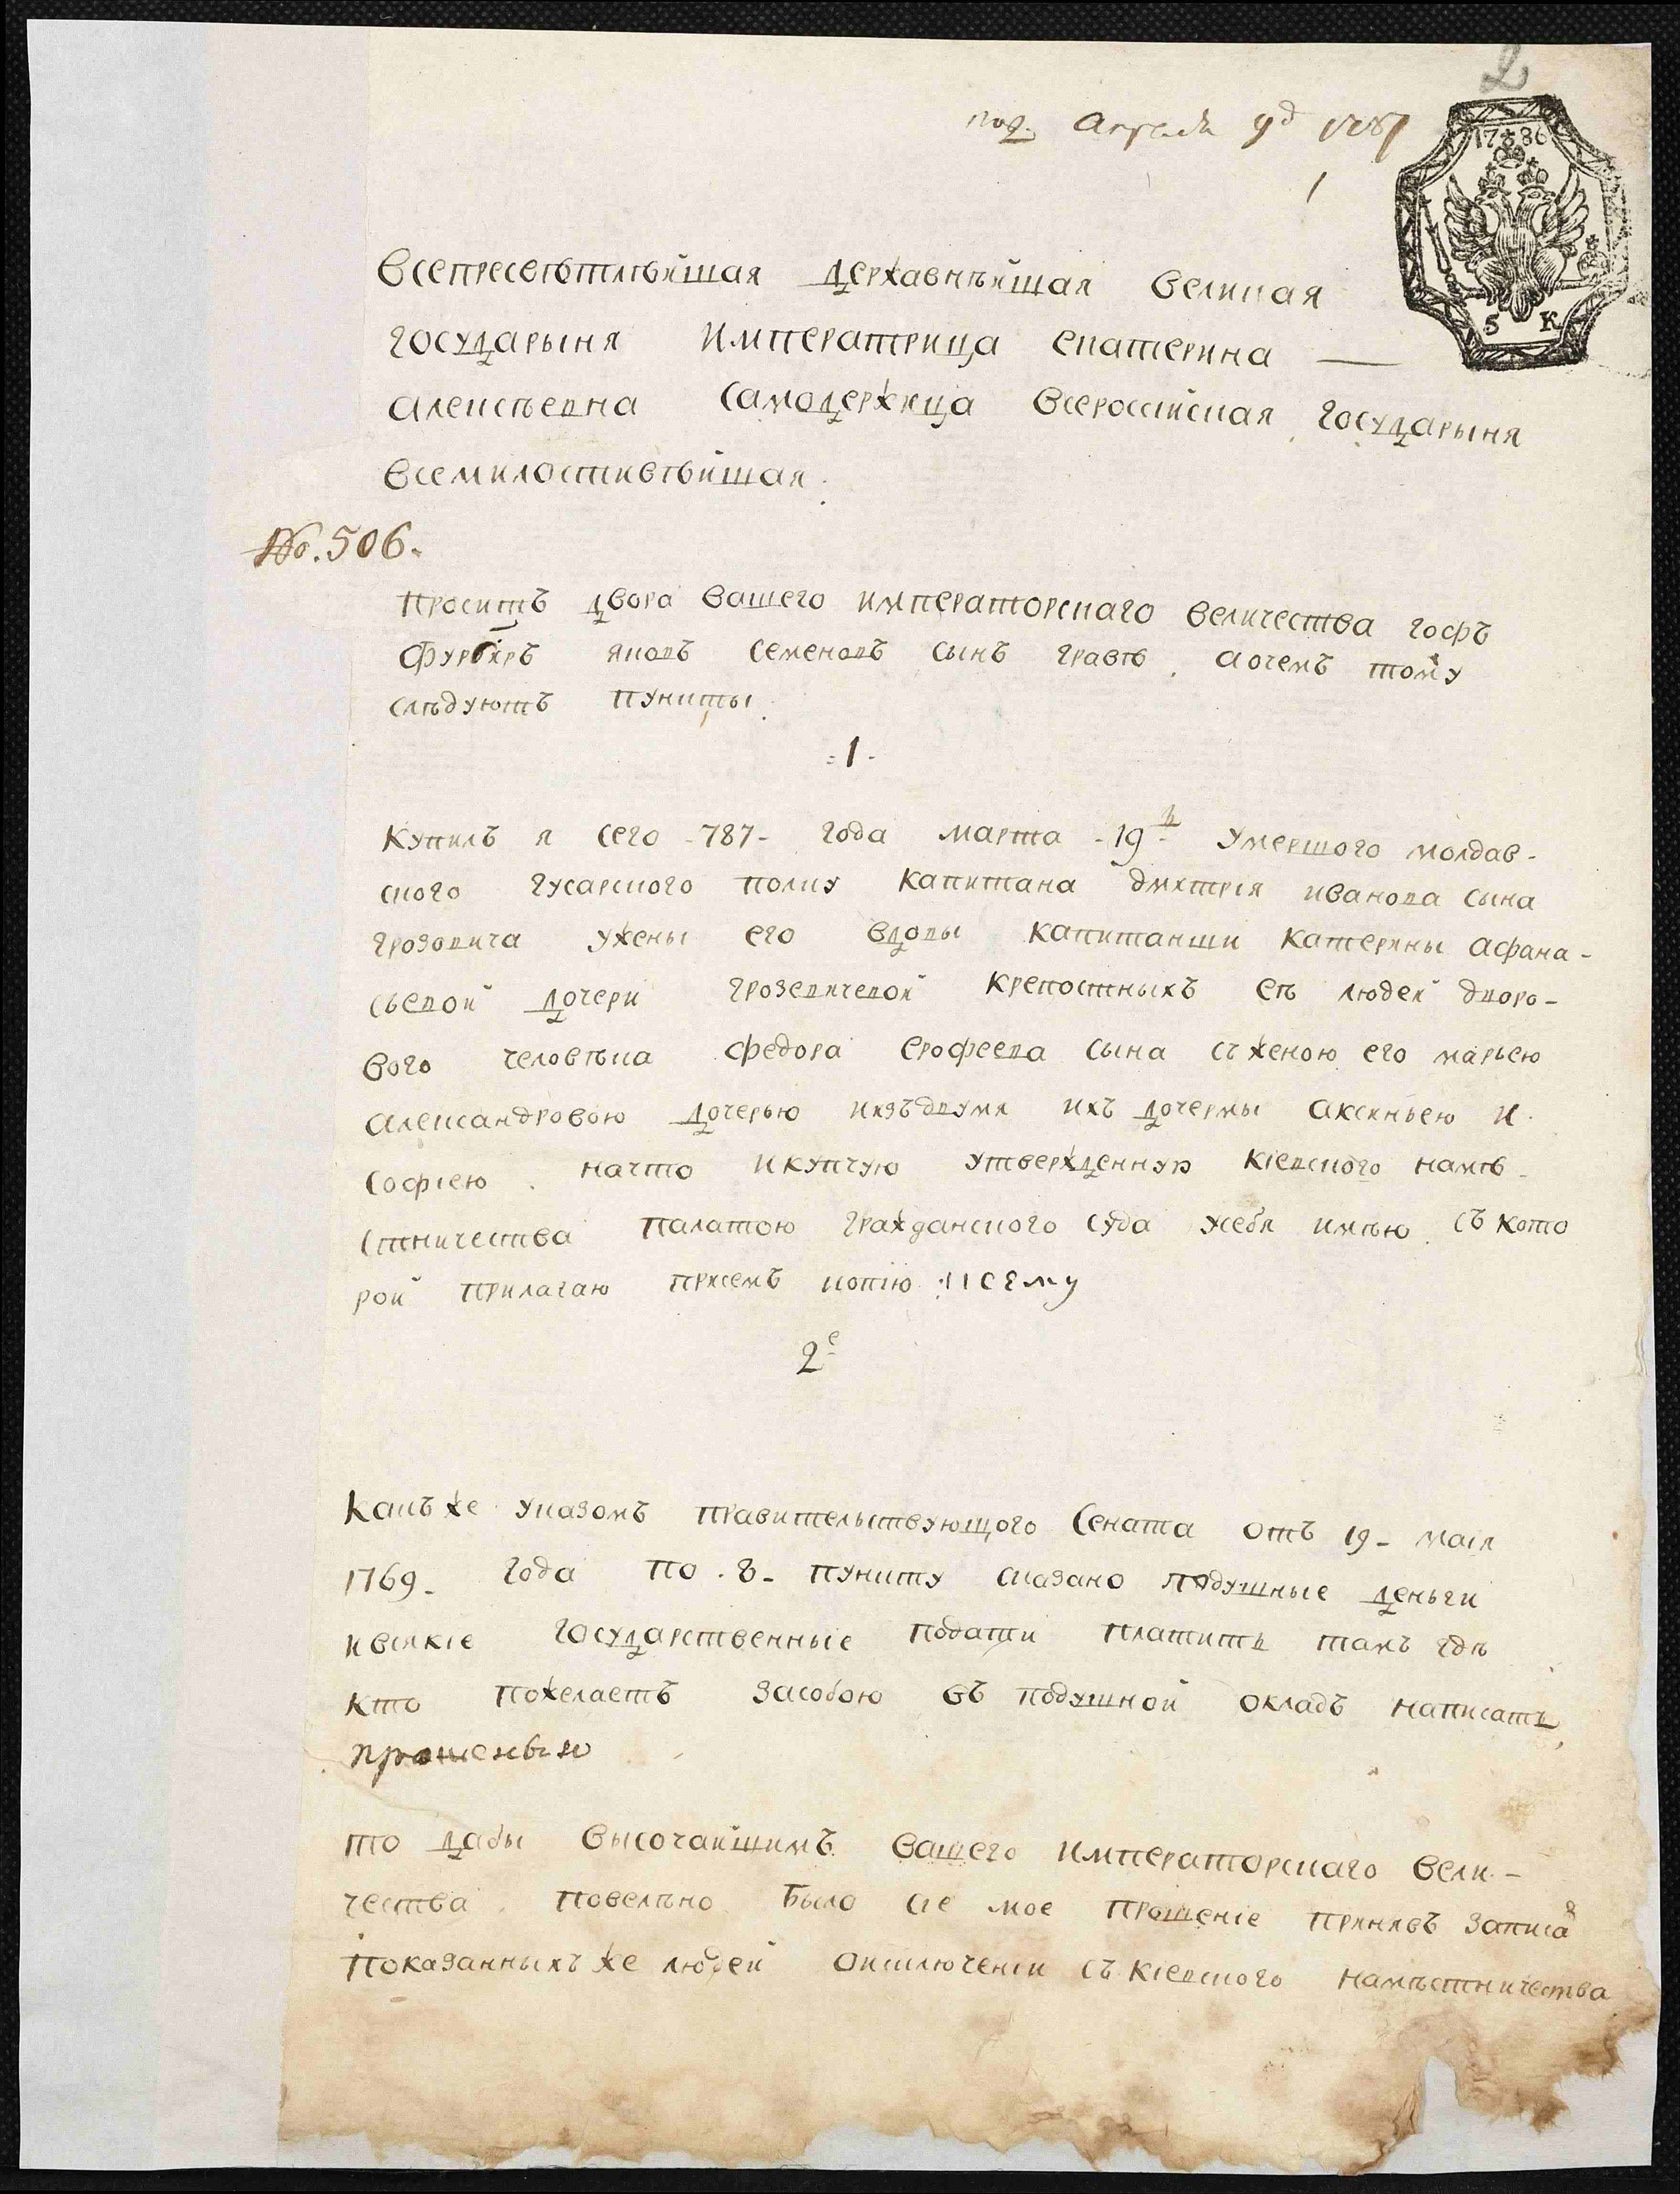 2
под. Апреля 9д 1787
1
17 86
5 К
Всепресветлѣйшая державнѣйшая великая
государыня Императрица екатерина —
алексѣевна самодержица всероссійская государыня
всемилостивѣйшая.
No. 506.
Проситъ двора вашего императорскаго величества гофъ
фурьиръ яковъ семеновъ сынъ гравѣ. а очемъ тому
слѣдуютъ пункты.
1
Купилъ я сего 787 года марта 19 умершого молдав-
ского гусарского полку капитана дмитрія иванова сына
грозовича ужены его вдовы капитанши катерины афана-
сьевой дочери грозевичевой крепостныхъ еѣ людей дворо-
вого человѣка федора ерофеева сына съженою его марьею
александровою дочерью иизъдвумя ихъ дочермы аксиньею и
софіею. начто икупчую утвержденную кіевского намѣ-
стничества палатою гражданского суда усебя имѣю. съ кото
рой прилагаю присемъ копію. Ксему
2е
Какъже указомъ правительствующого сената отъ 19 маія
1769 года по. 6 пункту сказано подушные деньги
ивсякіе государственные подати платить тамъ гдѣ
кто пожелаетъ засобою въ подушной окладъ написать,
прошенью
то дабы высочайшимъ вашего императорскаго вели-
чества повелѣно было сіе мое прошеніе принявъ записа
показанныхъже людей оисключеніи съ кіевского намѣстничества